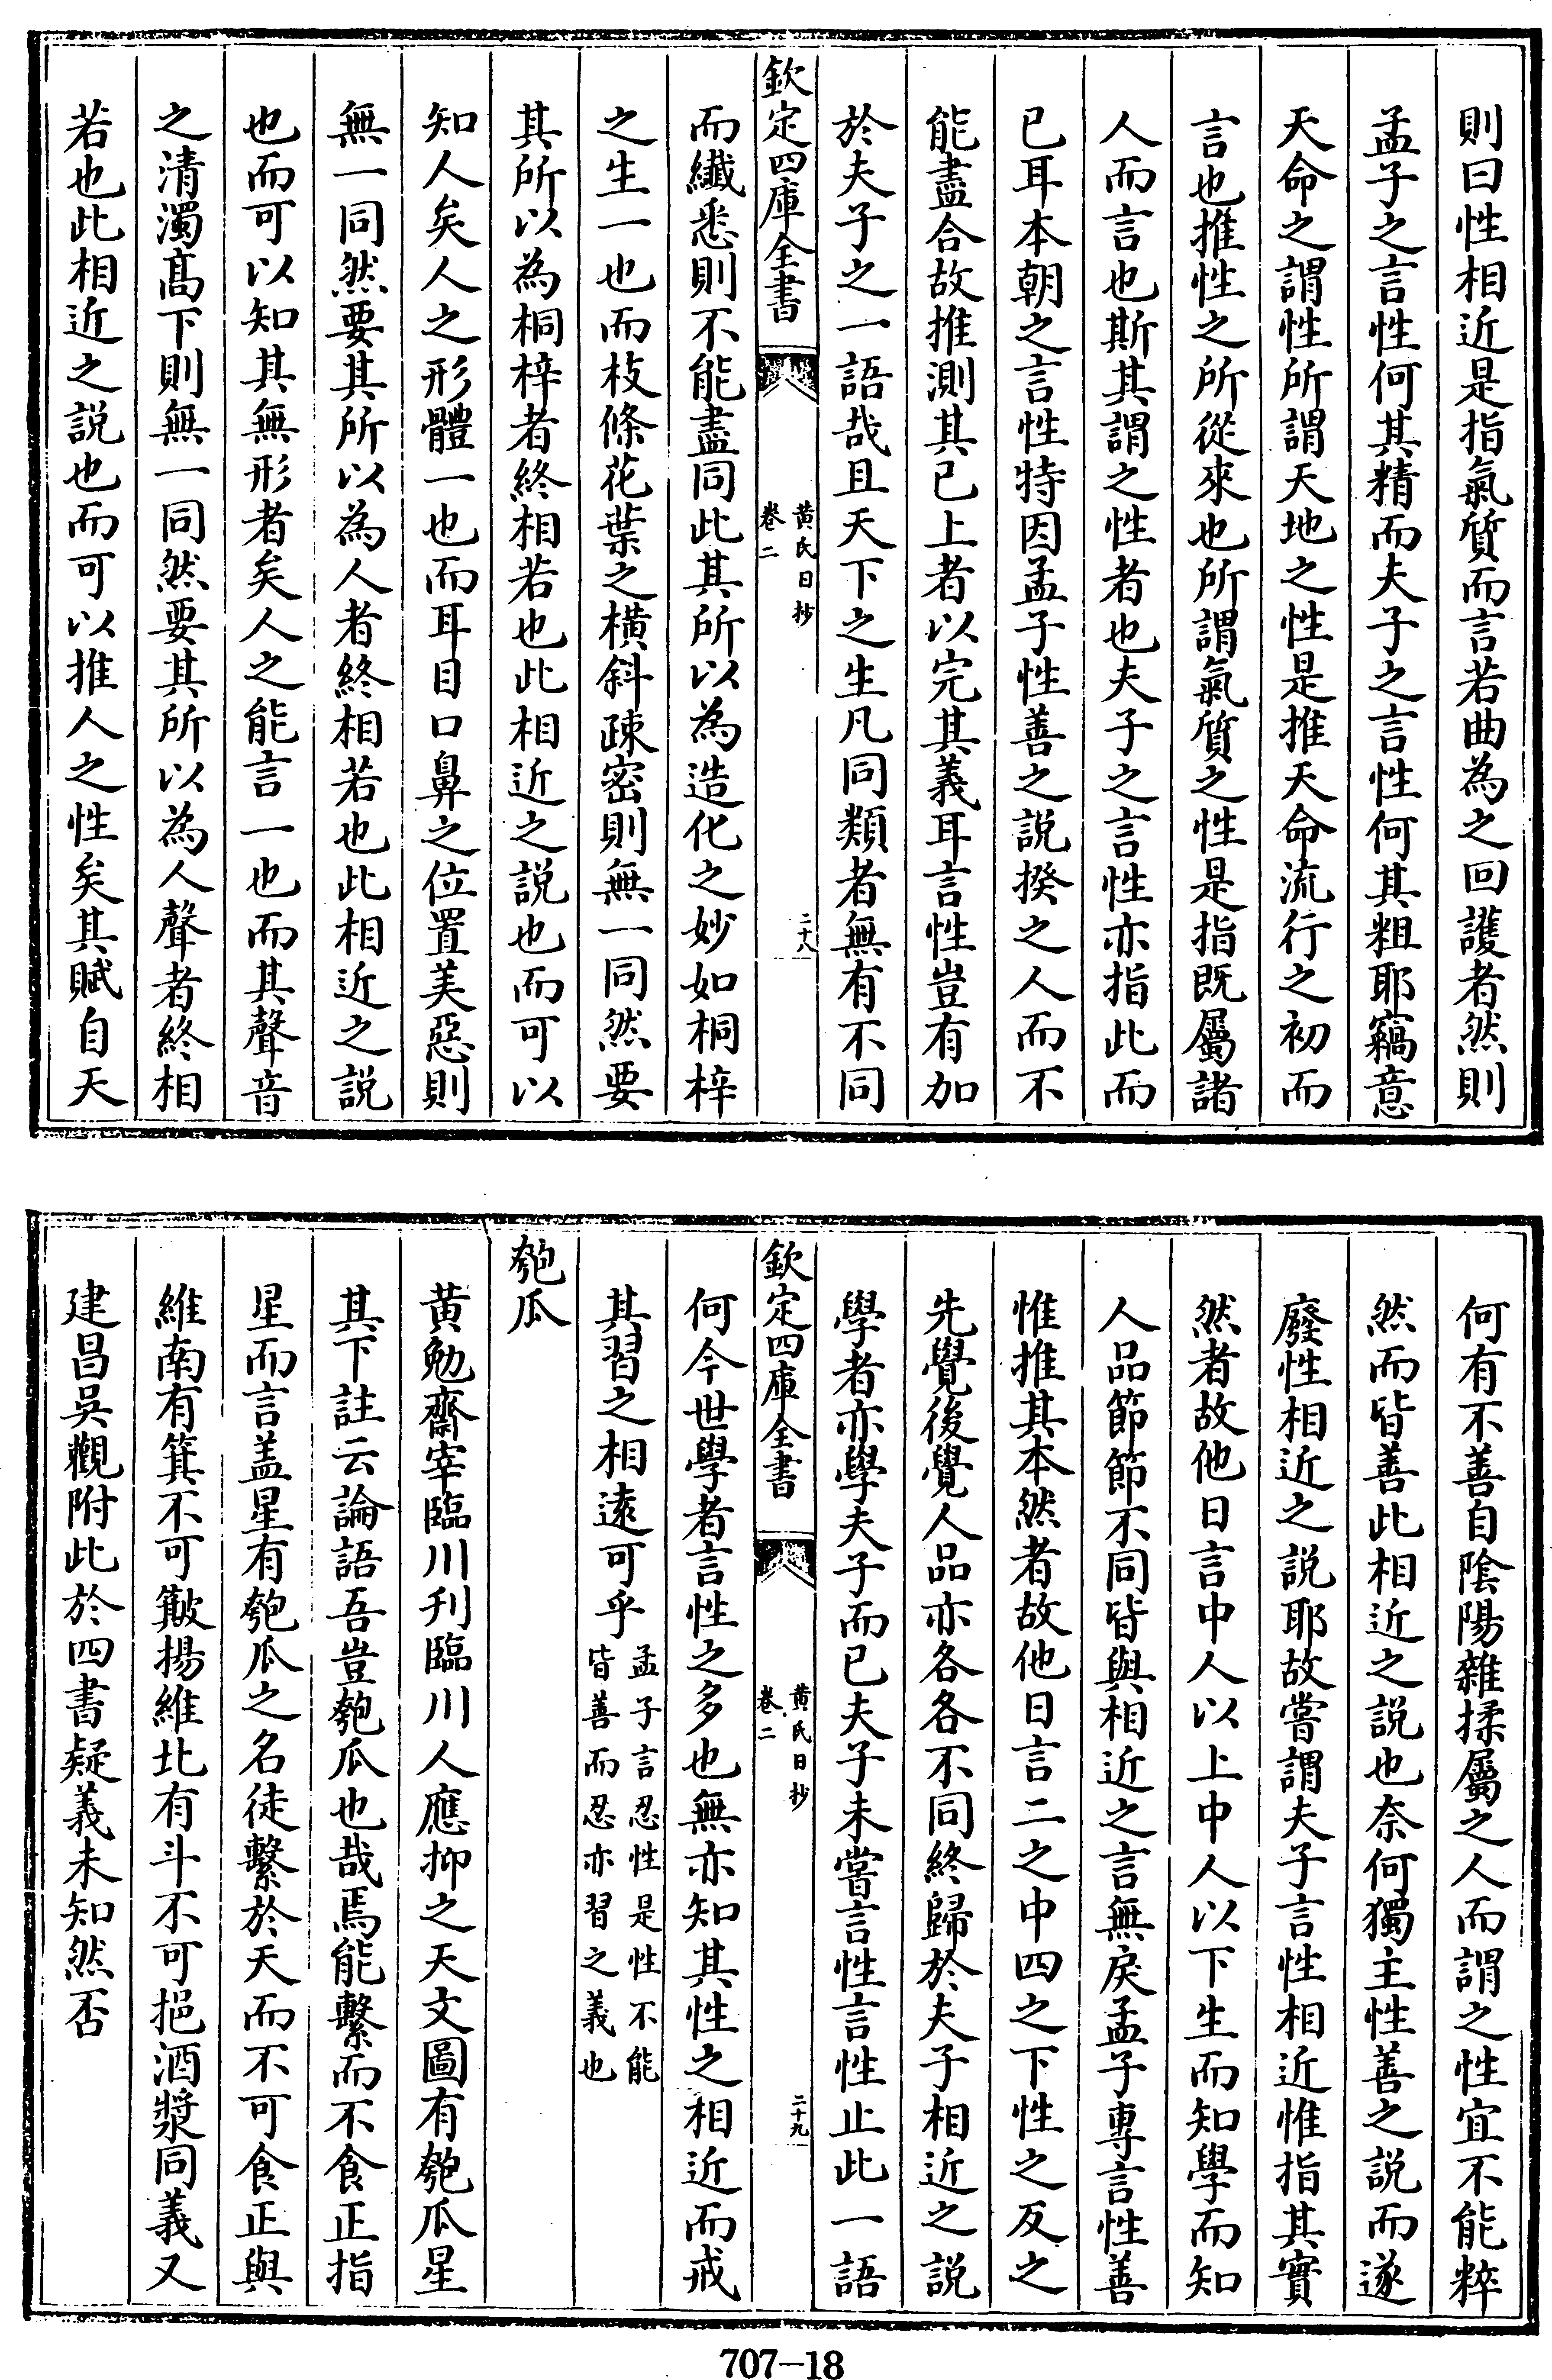 則曰性相近是指氣質而言若曲為之回護者然則
孟子之言性何其精而夫子之言性何其粗耶竊意
天命之謂性所謂天地之性是推天命流行之初而
言也推性之所從來也所謂氣質之性是指既屬諸
人而言也斯其謂之性者也夫子之言性亦指此而
已耳本朝之言性特因孟子性善之說揆之人而不
能盡合故推測其已上者以完其義耳言性豈有加
於夫子之一語哉且天下之生凡同類者無有不同
欽定四庫全書
黃氏日抄
卷二
二十八
而纖悉則不能盡同此其所以為造化之妙如桐梓
之生一也而枝條花葉之橫斜疎密則無一同然要
其所以為桐梓者終相若也此相近之說也而可以
知人矣人之形體一也而耳目口鼻之位置美惡則
無一同然要其所以為人者終相若也此相近之說
也而可以知其無形者矣人之能言一也而其聲音
之清濁髙下則無一同然要其所以為人聲者終相
若也此相近之說也而可以推人之性矣其賦自天
何有不善自陰陽雜揉屬之人而謂之性宜不能粹
然而皆善此相近之說也奈何獨主性善之說而遂
廢性相近之說耶故嘗謂夫子言性相近惟指其實
然者故他日言中人以上中人以下生而知學而知
人品節節不同皆與相近之言無戾孟子專言性善
惟推其本然者故他日言二之中四之下性之反之
先覺後覺人品亦各各不同終歸於夫子相近之說
學者亦學夫子而已夫子未嘗言性言性止此一語
欽定四庫全書
黃氏日抄
卷二
二十九
何今世學者言性之多也無亦知其性之相近而戒
其習之相遠可乎
孟子言忍性是性不能
皆善而忍亦習之義也
匏瓜
黃勉齋宰臨川刋臨川人應抑之天文圖有匏瓜星
其下註云論語吾豈匏瓜也哉焉能繫而不食正指
星而言盖星有匏瓜之名徒繫於天而不可食正與
維南有箕不可簸揚維北有斗不可挹酒漿同義又
建昌吳觀附此於四書疑義未知然否
707-18